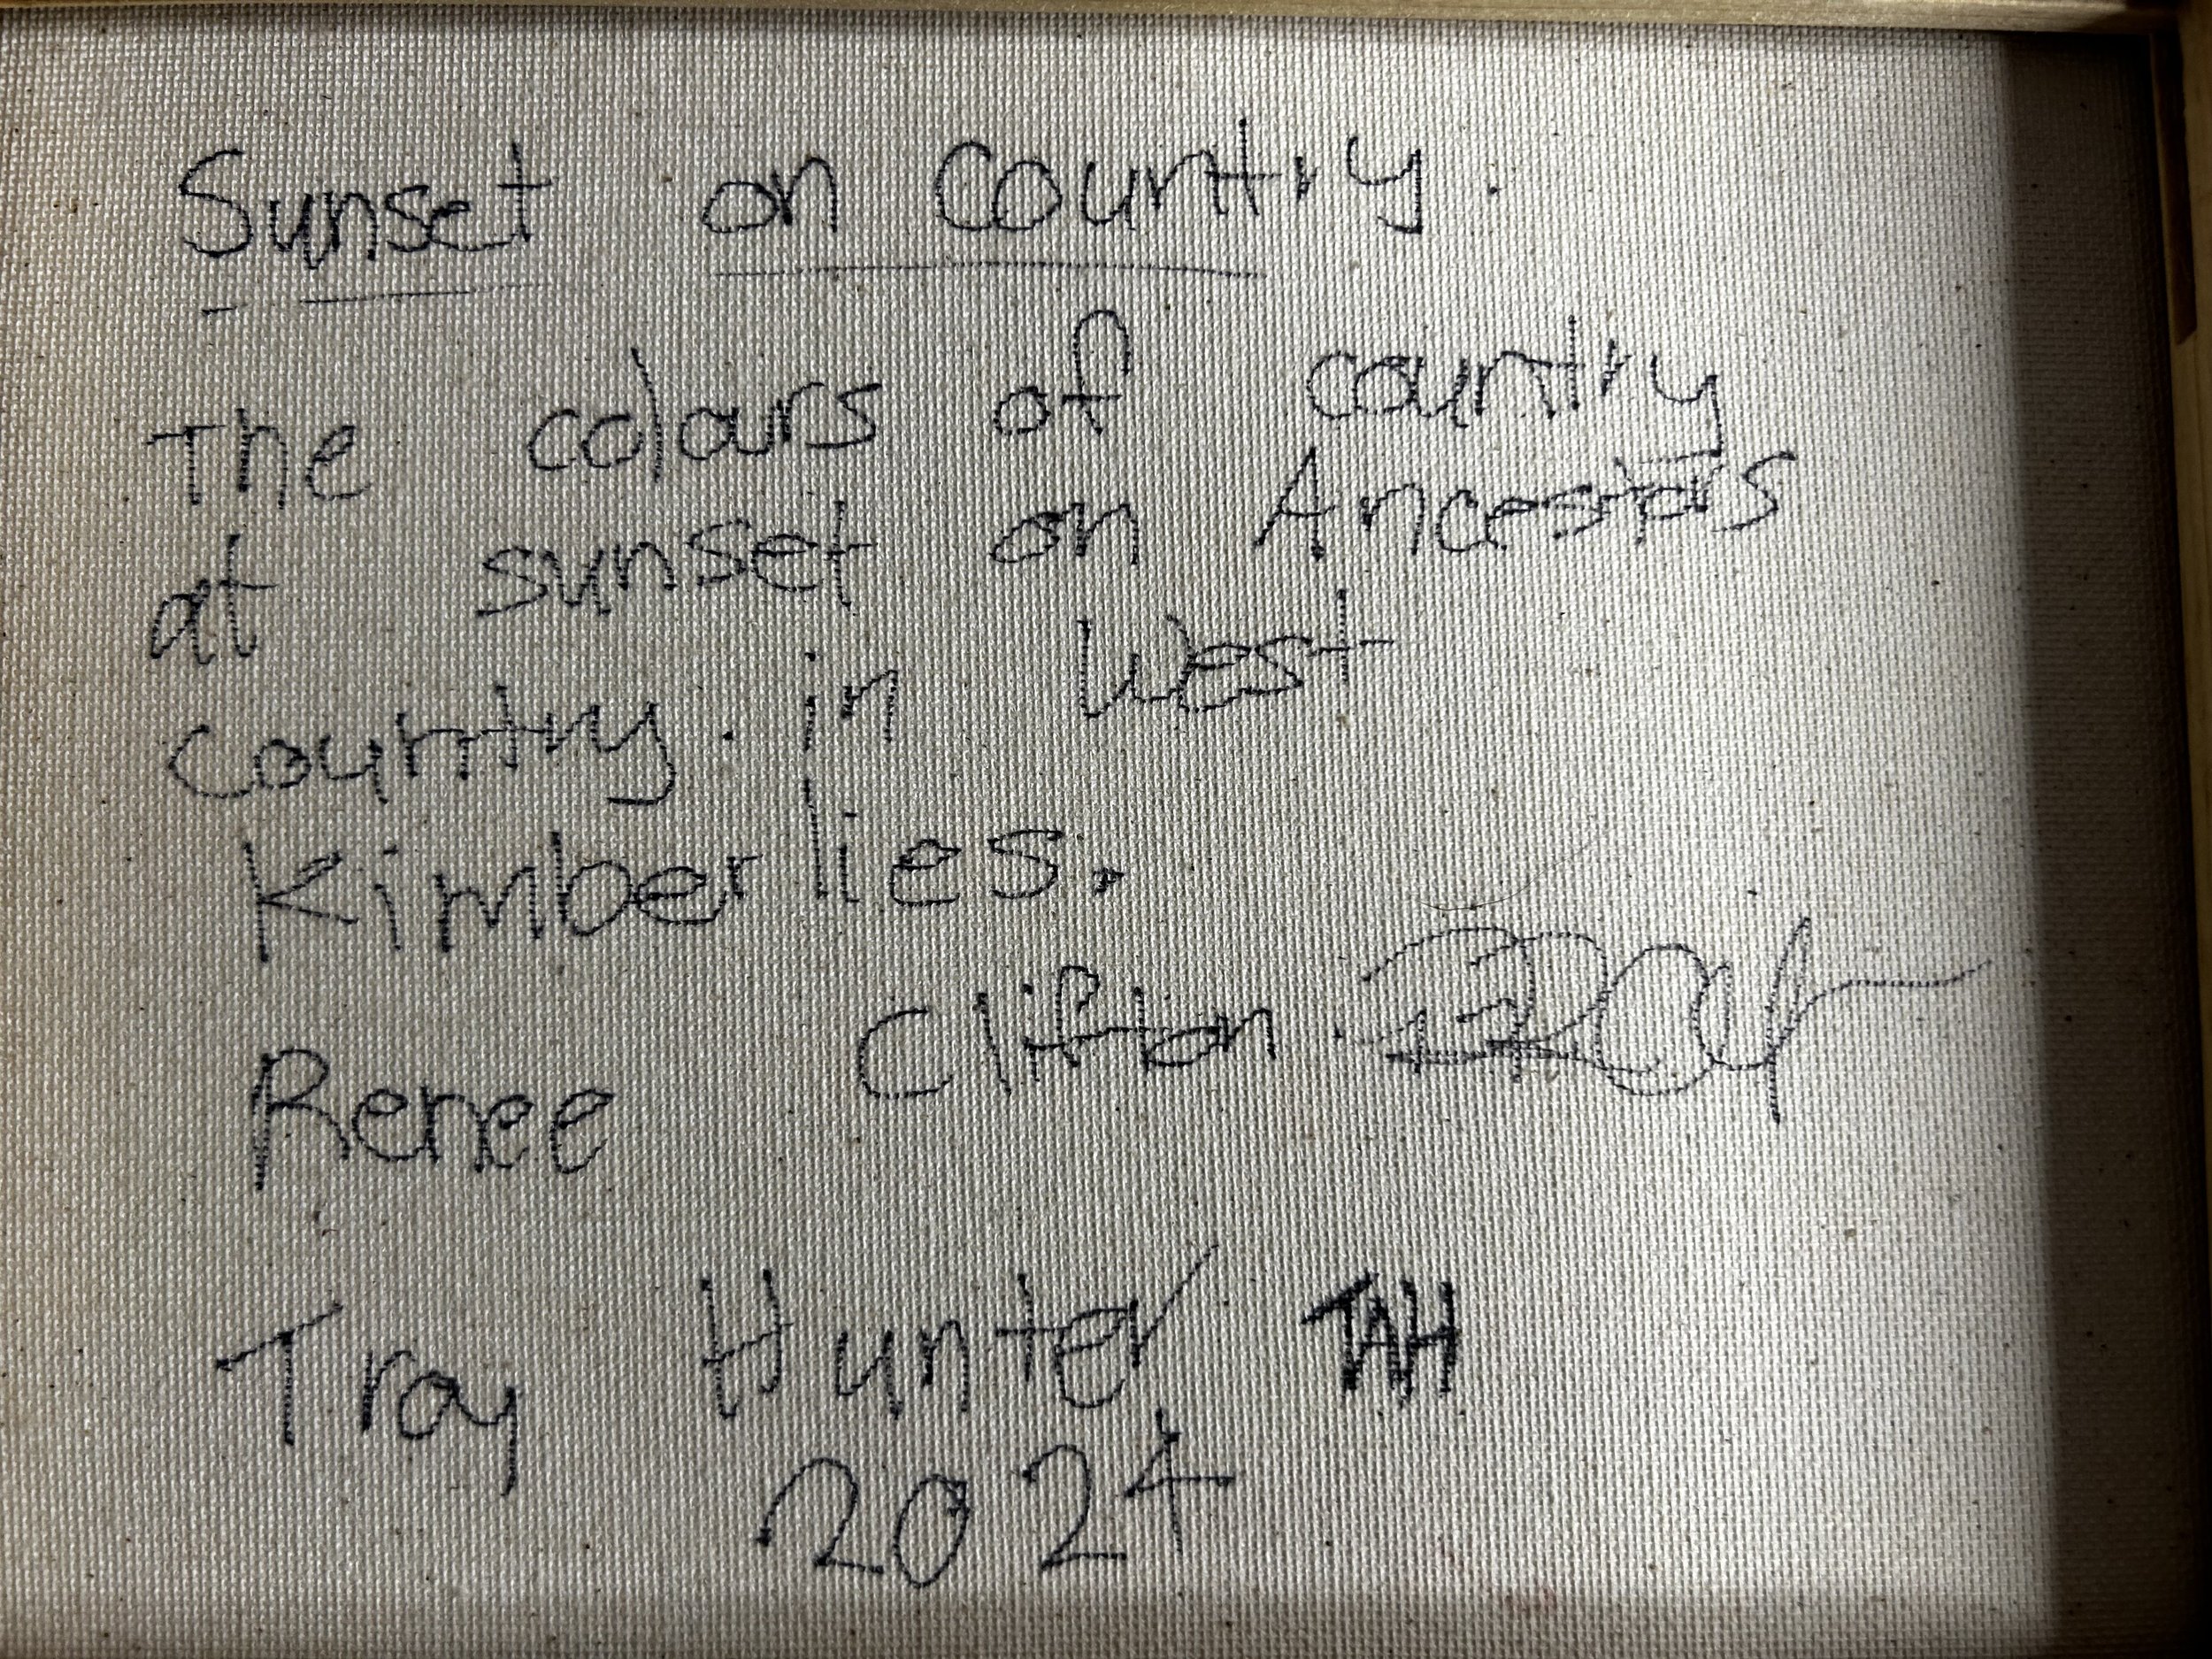 Sunset on country.
The colours of country
at sunset on Ancestors
country. in West
Kimberlies.
Renee Clifton.
Troy Hunter TAH
2024